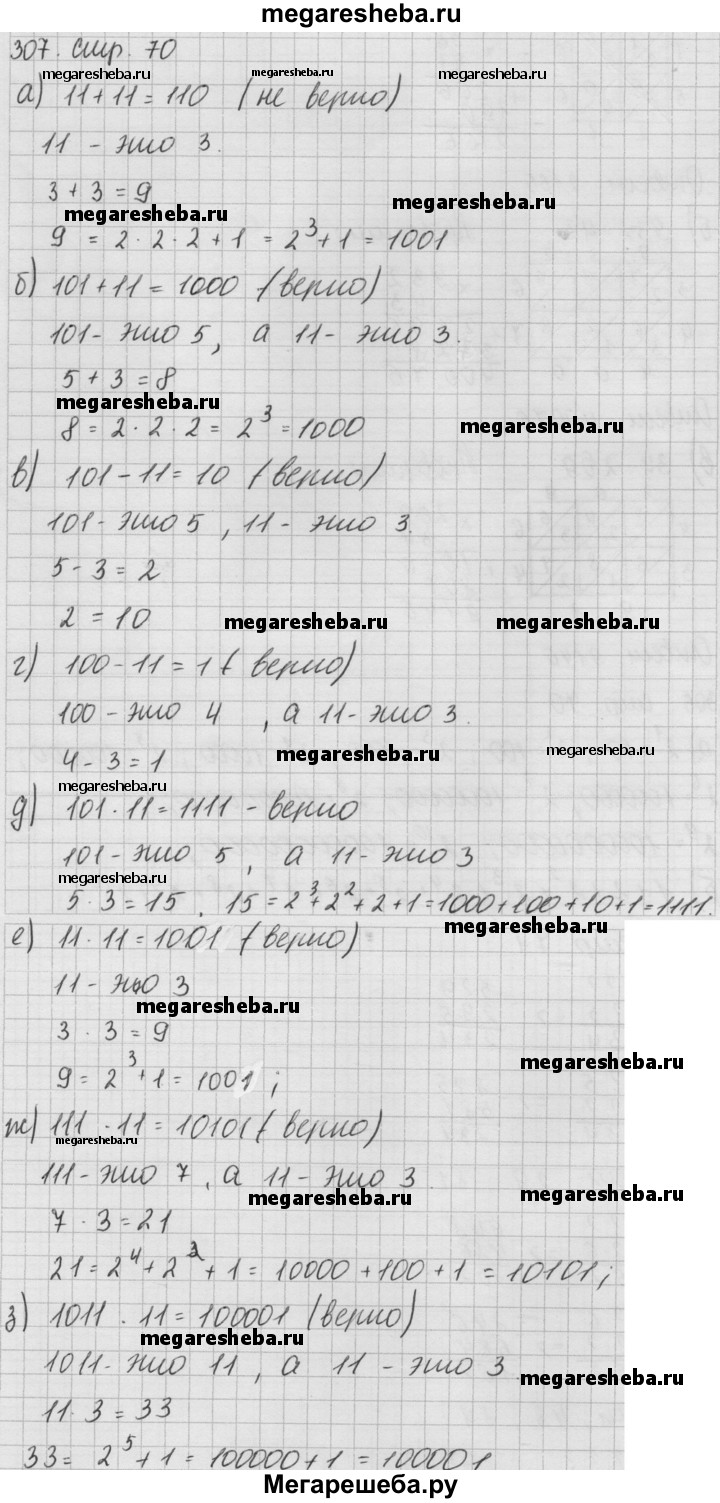 megaresheba.ru
307. стр. 70
megaresheba.ru megaresheba.ru megaresheba.ru
а) 11 + 11 = 110 (не верно)
11 - это 3.
3 + 3 = 9
megaresheba.ru megaresheba.ru
9 = 2 · 2 · 2 + 1 = 2³ + 1 = 1001
б) 101 + 11 = 1000 (верно)
101 - это 5, а 11 - это 3.
5 + 3 = 8
megaresheba.ru
8 = 2 · 2 · 2 = 2³ = 1000 megaresheba.ru
в) 101 - 11 = 10 (верно)
101 - это 5, 11 - это 3.
5 - 3 = 2
2 = 10 megaresheba.ru megaresheba.ru
г) 100 - 11 = 1 (верно)
100 - это 4, а 11 - это 3.
4 - 3 = 1 megaresheba.ru megaresheba.ru
megaresheba.ru
д) 101 · 11 = 1111 - верно
101 - это 5, а 11 - это 3
megaresheba.ru
5 · 3 = 15. 15 = 2³ + 2² + 2 + 1 = 1000 + 100 + 10 + 1 = 1111.
megaresheba.ru
е) 11 · 11 = 1001 (верно)
11 - это 3
megaresheba.ru
3 · 3 = 9
megaresheba.ru
9 = 2³ + 1 = 1001;
ж) 111 · 11 = 10101 (верно)
megaresheba.ru
111 - это 7, а 11 - это 3.
megaresheba.ru megaresheba.ru
7 · 3 = 21
21 = 2⁴ + 2² + 1 = 10000 + 100 + 1 = 10101;
з) 1011 · 11 = 100001 (верно)
megaresheba.ru
1011 - это 11, а 11 - это 3
megaresheba.ru
11 · 3 = 33
33 = 2⁵ + 1 = 100000 + 1 = 100001
Мегарешеба.ру